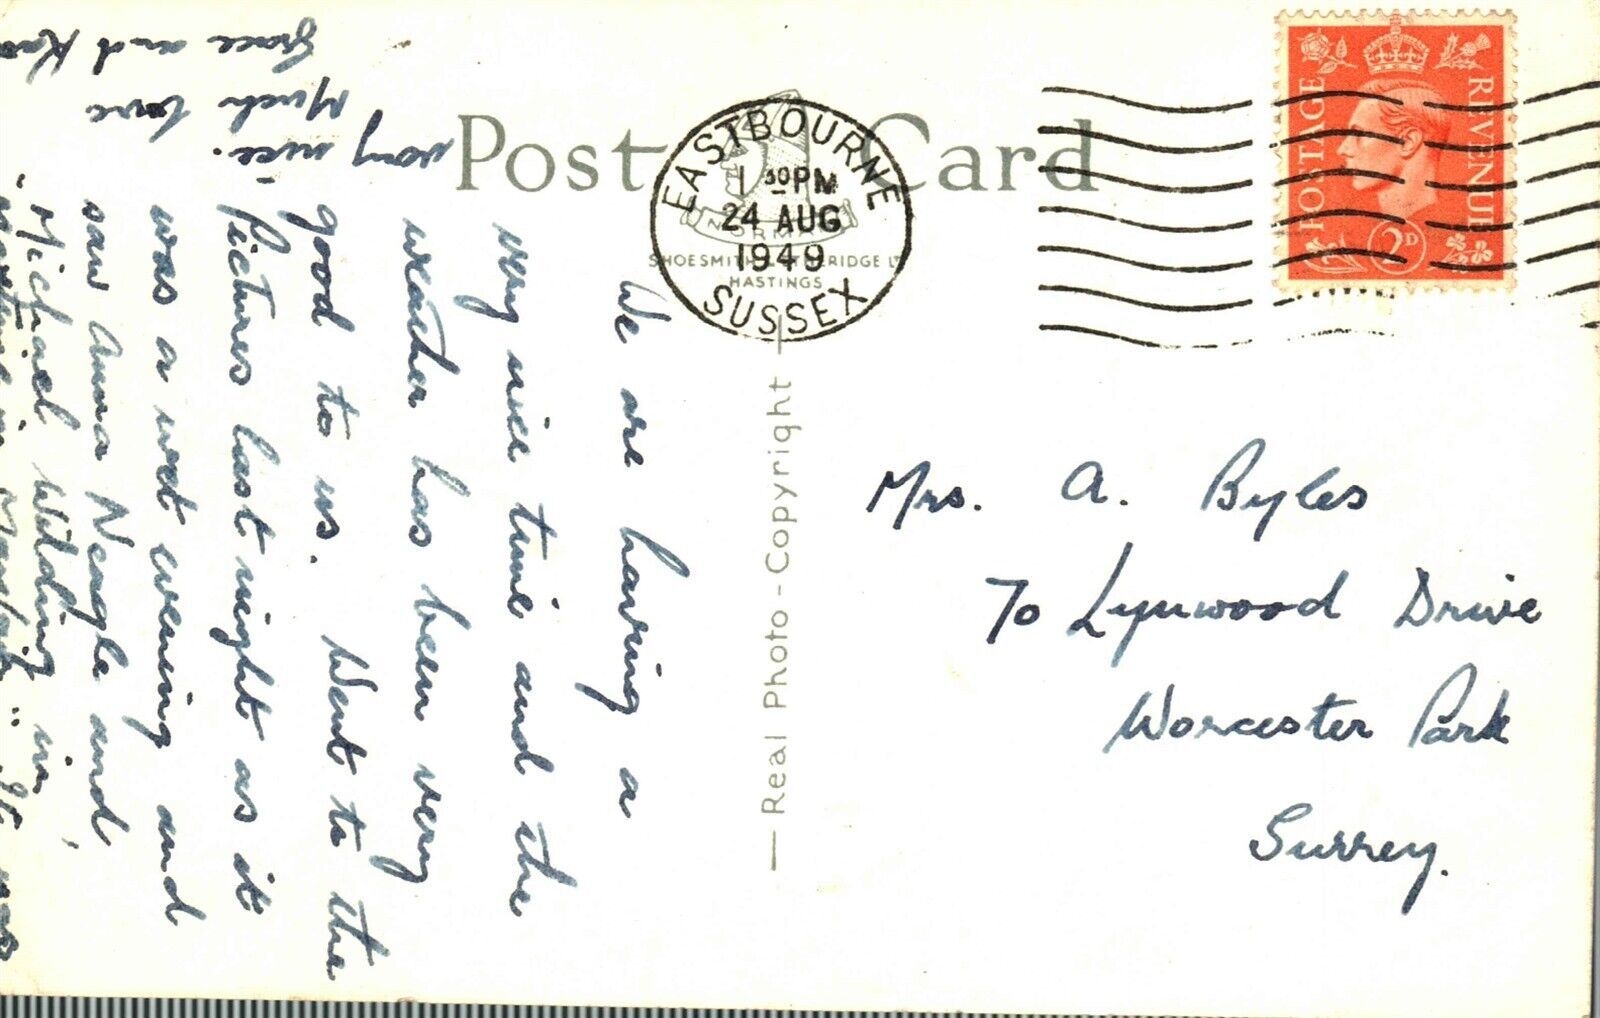 Post Card
EASTBOURNE
1 30 PM
24 AUG
1949
SUSSEX
NORMAN
SHOESMITH & ETHERIDGE LTD
HASTINGS
POSTAGE
REVENUE
2D
— Real Photo - Copyright —
We are having a
very nice time and the
weather has been very
good to us. Went to the
Pictures last night as it
was a wet evening and
saw Anna Neagle and
Michael Wilding in
"Maytime in Mayfair". It was
very nice.
Much love
Grace and
Mrs. A. Byles
70 Lynwood Drive
Worcester Park
Surrey.